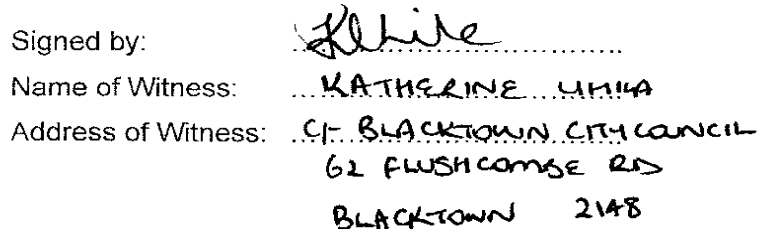 Signed by:
Name of Witness: KATHERINE UHILA
Address of Witness: C/- BLACKTOWN CITY COUNCIL
62 FLUSHCOMBE RD
BLACKTOWN 2148